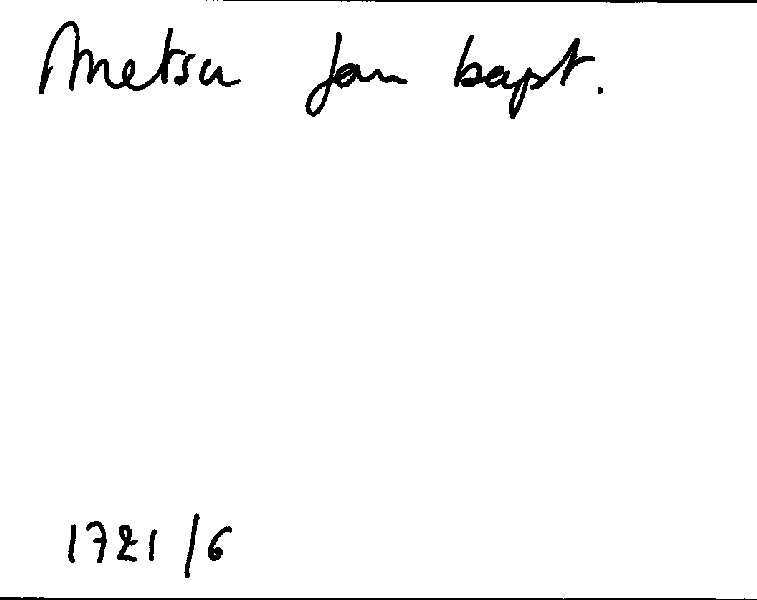 Metsu Jan bapt.
1721/6